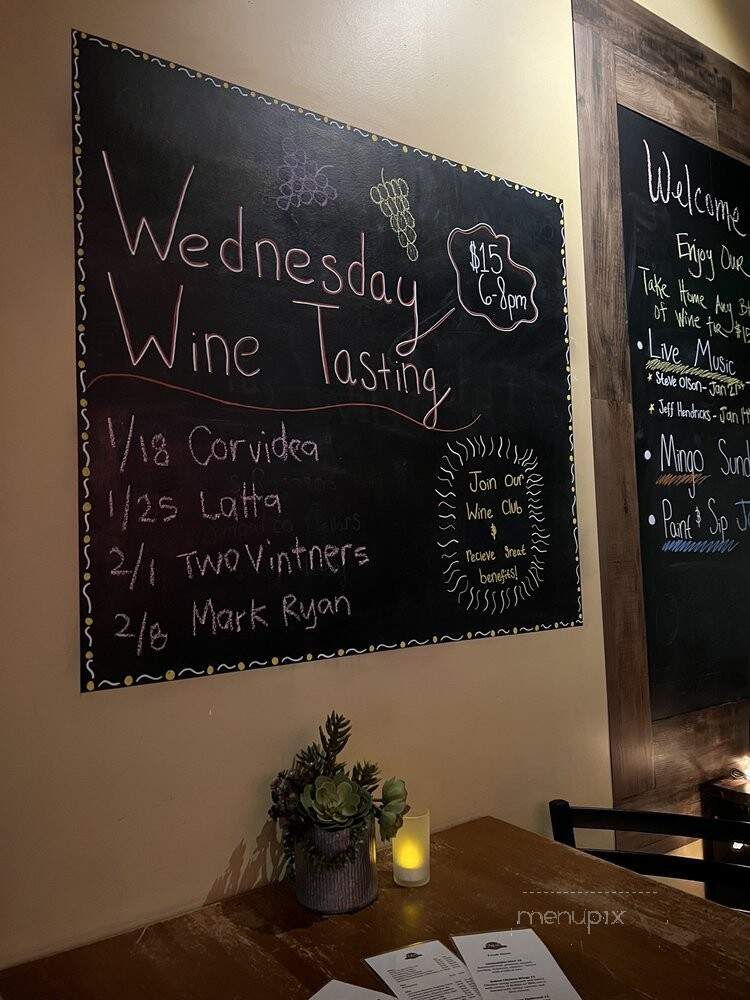 Wednesday
Wine Tasting
$15
6-8pm
1/18 Corvidea
1/25 Latta
2/1 Two Vintners
2/8 Mark Ryan
Join our
Wine Club
&
recieve great
benefits!
Welcome
Enjoy Our
Take Home Any
of Wine
Live Music
* Steve Olson - Jan 21st
* Jeff Hendricks - Jan
Mingo
Paint & Sip
menupix